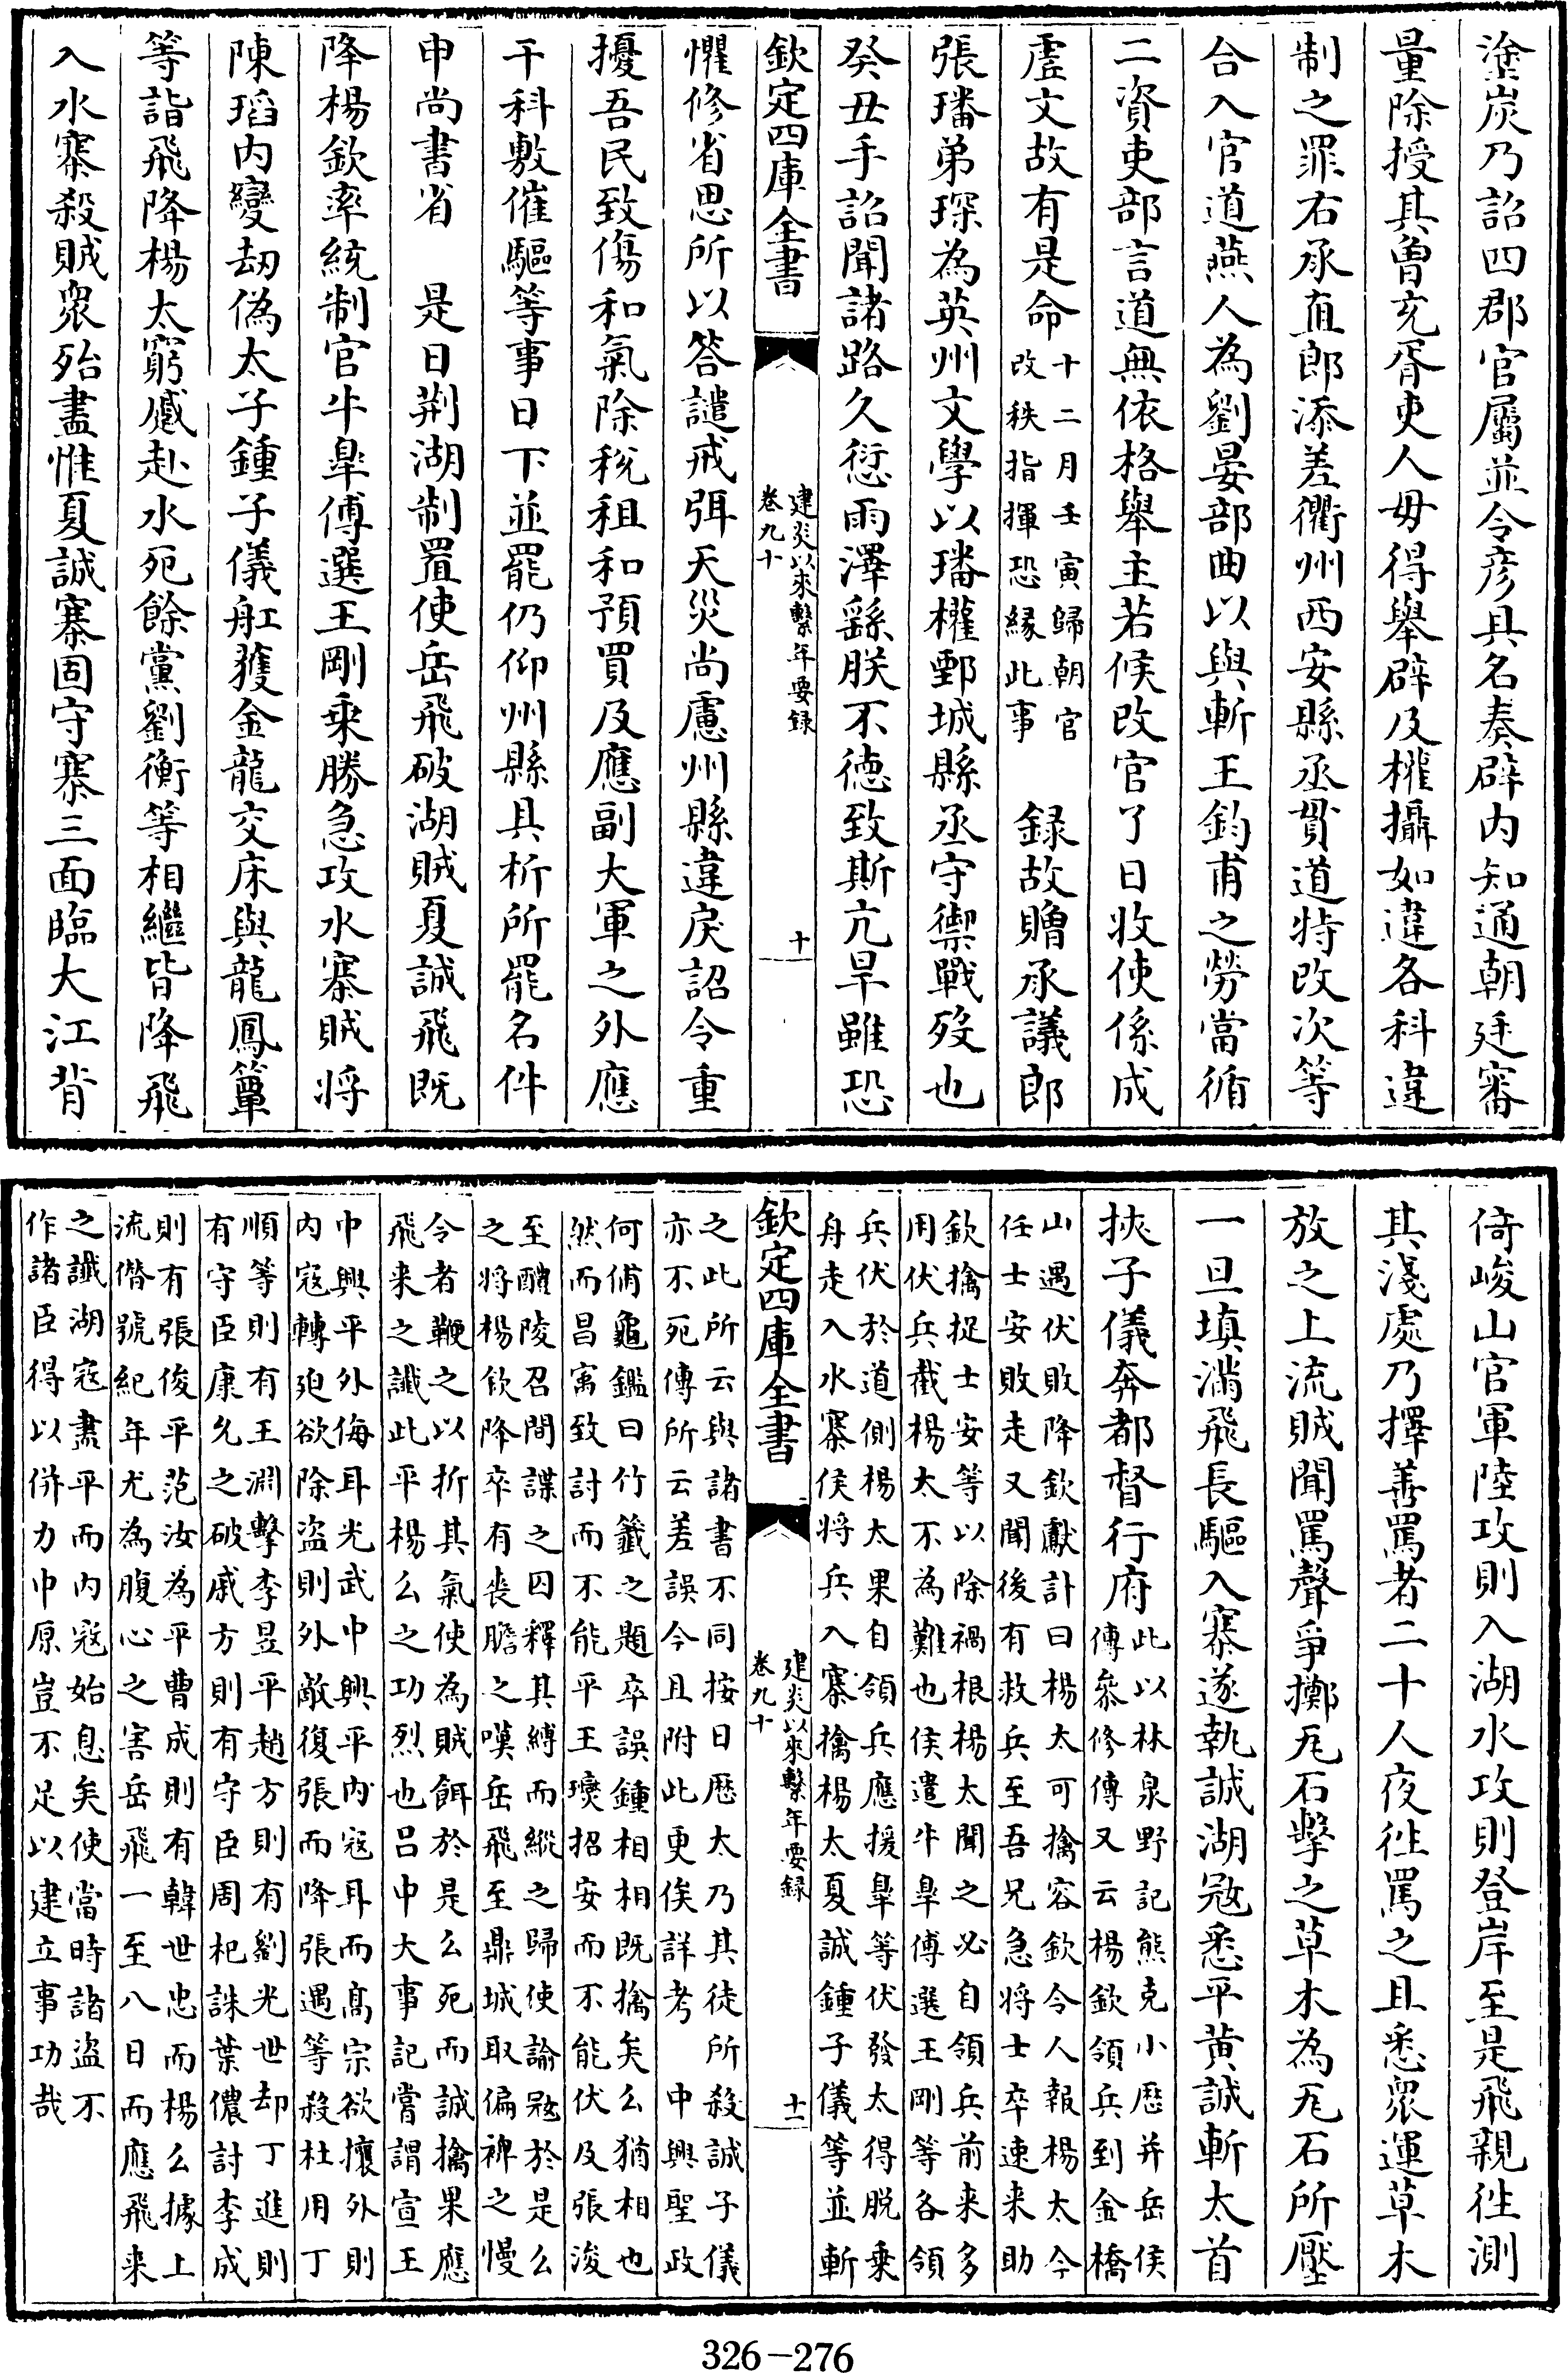 塗炭乃詔四郡官屬並令彦具名奏辟内知通朝廷審
量除授其曾充胥吏人毋得舉辟及權攝如違各科違
制之罪右承直郎添差衢州西安縣丞貫道特改次等
合入官道燕人為劉晏部曲以與斬王鈞甫之勞當循
二資吏部言道無依格舉主若候改官了日收使係成
虚文故有是命十二月壬寅歸朝官
改秩指揮恐縁此事　録故贈承議郎
張璠弟琛為英州文學以璠權鄄城縣丞守禦戰歿也
癸丑手詔聞諸路久愆雨澤繇朕不德致斯亢旱雖恐
欽定四庫全書
建炎以來繫年要録
卷九十
十
懼修省思所以答譴戒弭天災尚慮州縣違戾詔令重
擾吾民致傷和氣除稅租和預買及應副大軍之外應
干科敷催驅等事日下並罷仍仰州縣具析所罷名件
申尚書省　是日荆湖制置使岳飛破湖賊夏誠飛既
降楊欽率統制官牛臯傅選王剛乘勝急攻水寨賊将
陳瑫内變刼偽太子鍾子儀舡獲金龍交床與龍鳳簟
等詣飛降楊太窮蹙赴水死餘黨劉衡等相繼皆降飛
入水寨殺賊衆殆盡惟夏誠寨固守寨三面臨大江背
倚峻山官軍陸攻則入湖水攻則登岸至是飛親往測
其淺處乃擇善罵者二十人夜往罵之且悉衆運草木
放之上流賊聞罵聲爭擲瓦石擊之草木為瓦石所壓
一旦填滿飛長驅入寨遂執誠湖冦悉平黄誠斬太首
挾子儀奔都督行府此以林泉野記熊克小歴并岳侯
傳叅修傳又云楊欽領兵到金橋
山遇伏敗降欽獻計曰楊太可擒容欽令人報楊太今
任士安敗走又聞後有救兵至吾兄急将士卒速来助
欽擒捉士安等以除禍根楊太聞之必自領兵前来多
用伏兵截楊太不為難也侯遣牛臯傅選王剛等各領
兵伏於道側楊太果自領兵應援臯等伏發太得脱乗
舟走入水寨侯将兵入寨擒楊太夏誠鍾子儀等並斬
欽定四庫全書
建炎以來繫年要録
卷九十
十一
之此所云與諸書不同按日歴太乃其徒所殺誠子儀
亦不死傳所云差誤今且附此更俟詳考　中興聖政
何俌龜鑑曰竹籤之題卒誤鍾相相既擒矣么猶相也
然而昌寓致討而不能平王𤫉招安而不能伏及張浚
至醴陵召間諜之囚釋其縛而縱之歸使諭冦於是么
之将楊欽降卒有喪膽之嘆岳飛至鼎城取偏裨之慢
令者鞭之以折其氣使為賊餌於是么死而誠擒果應
飛来之讖此平楊么之功烈也吕中大事記嘗謂宣王
中興平外侮耳光武中興平内寇耳而髙宗欲攘外則
内寇轉廹欲除盗則外敵復張而降張遇等殺杜用丁
順等則有王淵擊李昱平趙方則有劉光世却丁進則
有守臣康允之破戚方則有守臣周杞誅葉儂討李成
則有張俊平范汝為平曹成則有韓世忠而楊么據上
流僭號紀年尤為腹心之害岳飛一至八日而應飛来
之讖湖寇盡平而内寇始息矣使當時諸盗不
作諸臣得以併力中原豈不足以建立事功哉
326-276